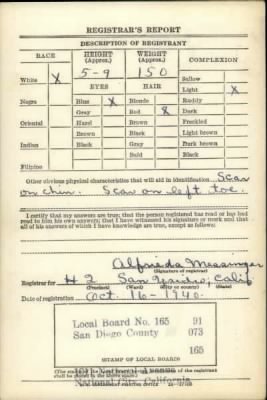 REGISTRAR'S REPORT
DESCRIPTION OF REGISTRANT
RACE HEIGHT (Approx.) WEIGHT (Approx.) COMPLEXION
White X 5-9 150 Sallow
EYES HAIR Light X
Negro Blue X Blonde Ruddy
Gray Red X Dark
Oriental Hazel Brown Freckled
Brown Black Light brown
Indian Black Gray Dark brown
Bald Black
Filipino
Other obvious physical characteristics that will aid in identification Scar
on chin. Scar on left toe.
I certify that my answers are true; that the person registered has read or has had
read to him his own answers; that I have witnessed his signature or mark and that
all of his answers of which I have knowledge are true, except as follows:
Alfrieda Messinger
(Signature of registrar)
Registrar for H 2 San Ysidro, Calif
(Precinct) (Ward) (City or county) (State)
Date of registration Oct. 16 - 1940.
Local Board No. 165 91
San Diego County 073
165
STAMP OF LOCAL BOARD
National City, California